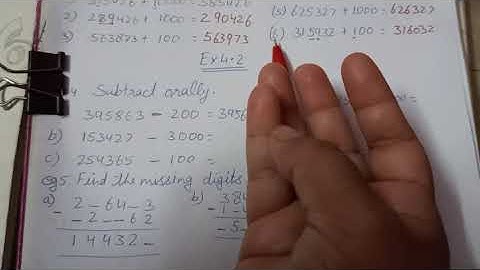 2) 289426 + 1000 = 290426
3) 563873 + 100 = 563973
(5) 625327 + 1000 = 626327
(6) 315932 + 100 = 316032
Ex 4.2
4 Subtract orally.
395863 - 200 = 3956
b) 153427 - 3000 =
c) 254365 - 100 =
Q5. Find the missing digits
a) 2 - 64 - 3
- - 2 - - 6 2
1 4 4 3 2 -
b) 38
- 1 -
- 5 -